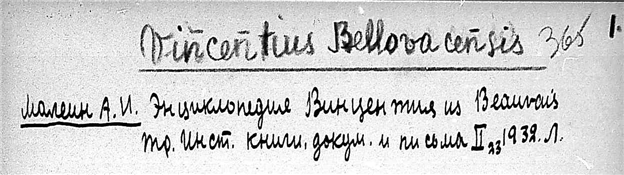 Vincentius Bellovacensis 365 1.
Малеин А.И. Энциклопедия Винцентия из Beauvais
Тр. Инст. книги, докум. и письма II 23 1932. Л.